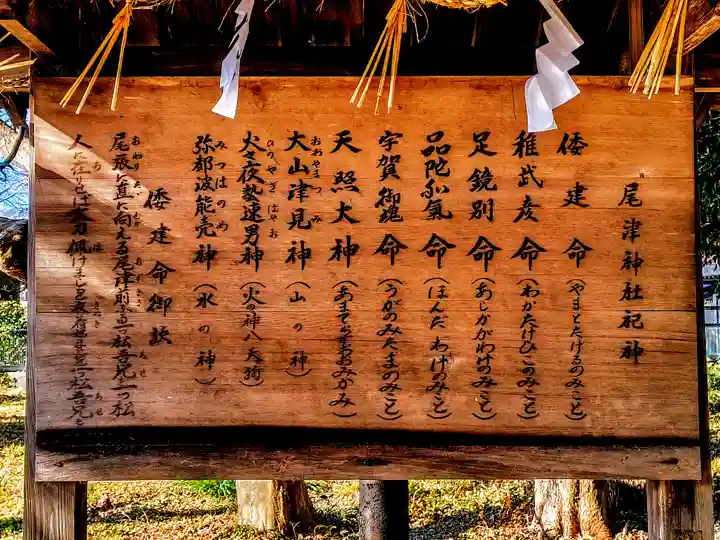 尾津神社祀神
倭建命（やまとたけるのみこと）
稚武彦命（わかたけひこのみこと）
足鏡別命（あしかがわけのみこと）
品陀和氣命（ほんだわけのみこと）
宇賀御魂命（うがのみたまのみこと）
天照大神（あまてらすおおみかみ）
大山津見神（山の神）
おおやまつみ
火之夜藝速男神（火の神八天狗）
ひのやぎはやお
弥都波能売神（水の神）
みつはのめ
倭建命御歌
尾張に直に向える尾津前なる一つ松吾兄を一つ松
人に在りせば太刀佩けましを衣著せましを一つ松吾兄を